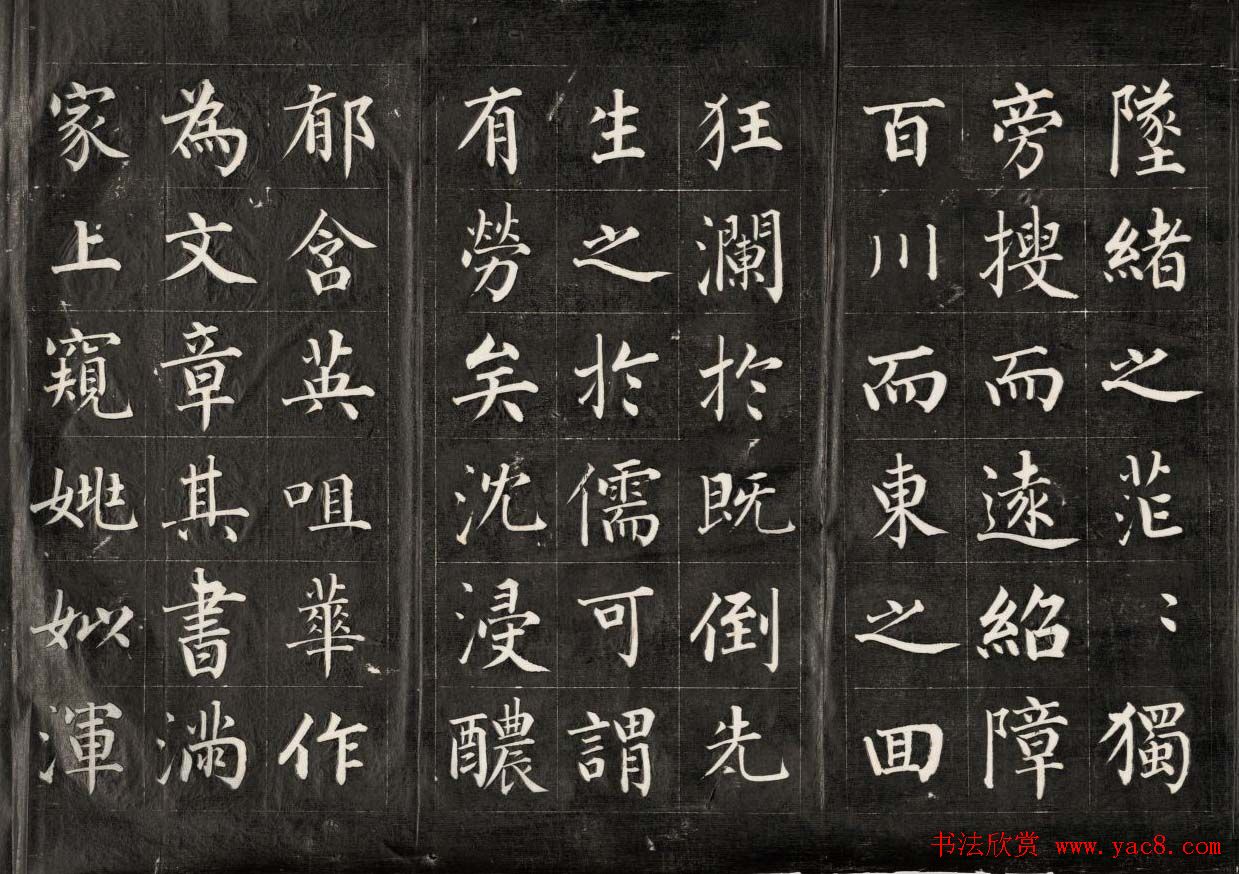 墜緒之茫〻獨
旁搜而遠紹障
百川而東之回
狂瀾於既倒先
生之於儒可謂
有勞矣沈浸醲
郁含英咀華作
為文章其書滿
家上窺姚姒渾
书法欣赏 www.yac8.com